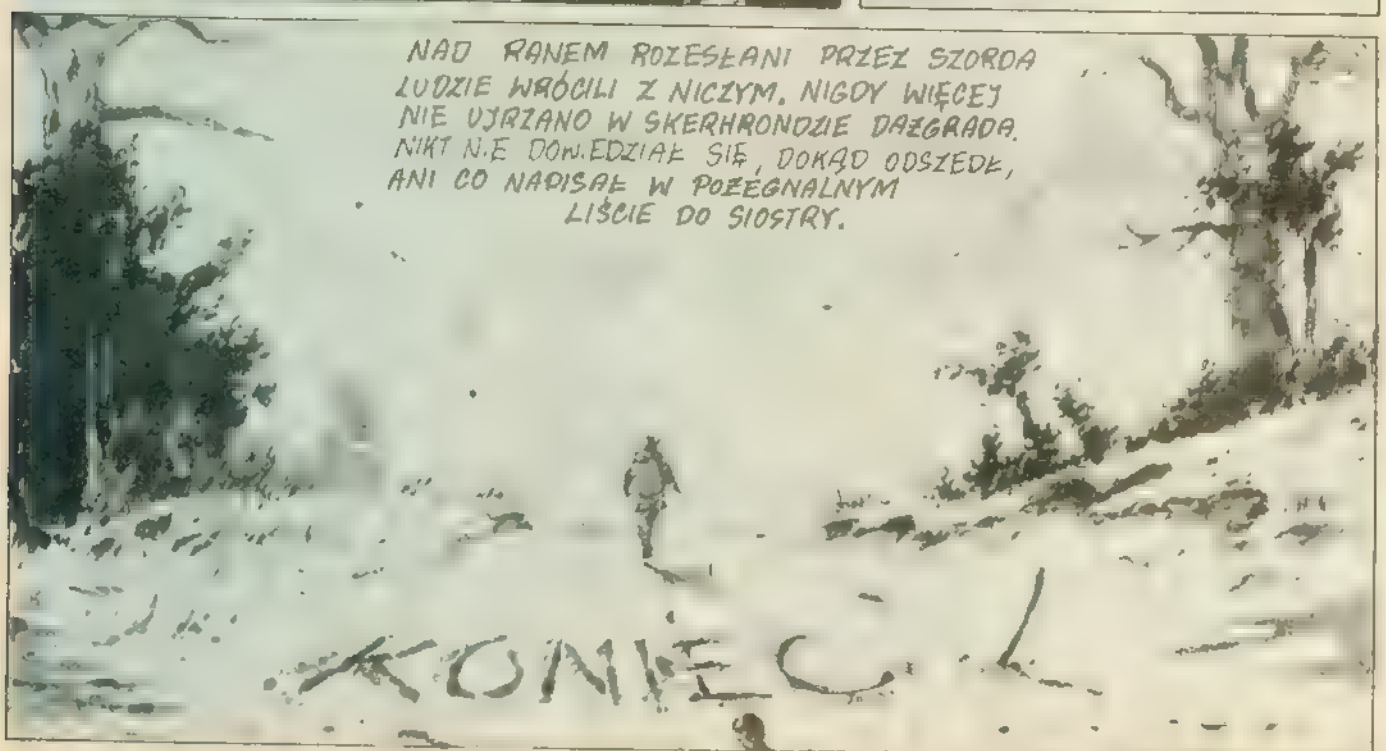 NAD RANEM ROZESŁANI PRZEZ SZORDA
LUDZIE WRÓCILI Z NICZYM. NIGDY WIĘCEJ
NIE UJRZANO W SKERHRONDZIE DAZGRADA.
NIKT NIE DOWIEDZIAŁ SIĘ, DOKĄD ODSZEDŁ,
ANI CO NAPISAŁ W POŻEGNALNYM
LIŚCIE DO SIOSTRY.
KONIEC